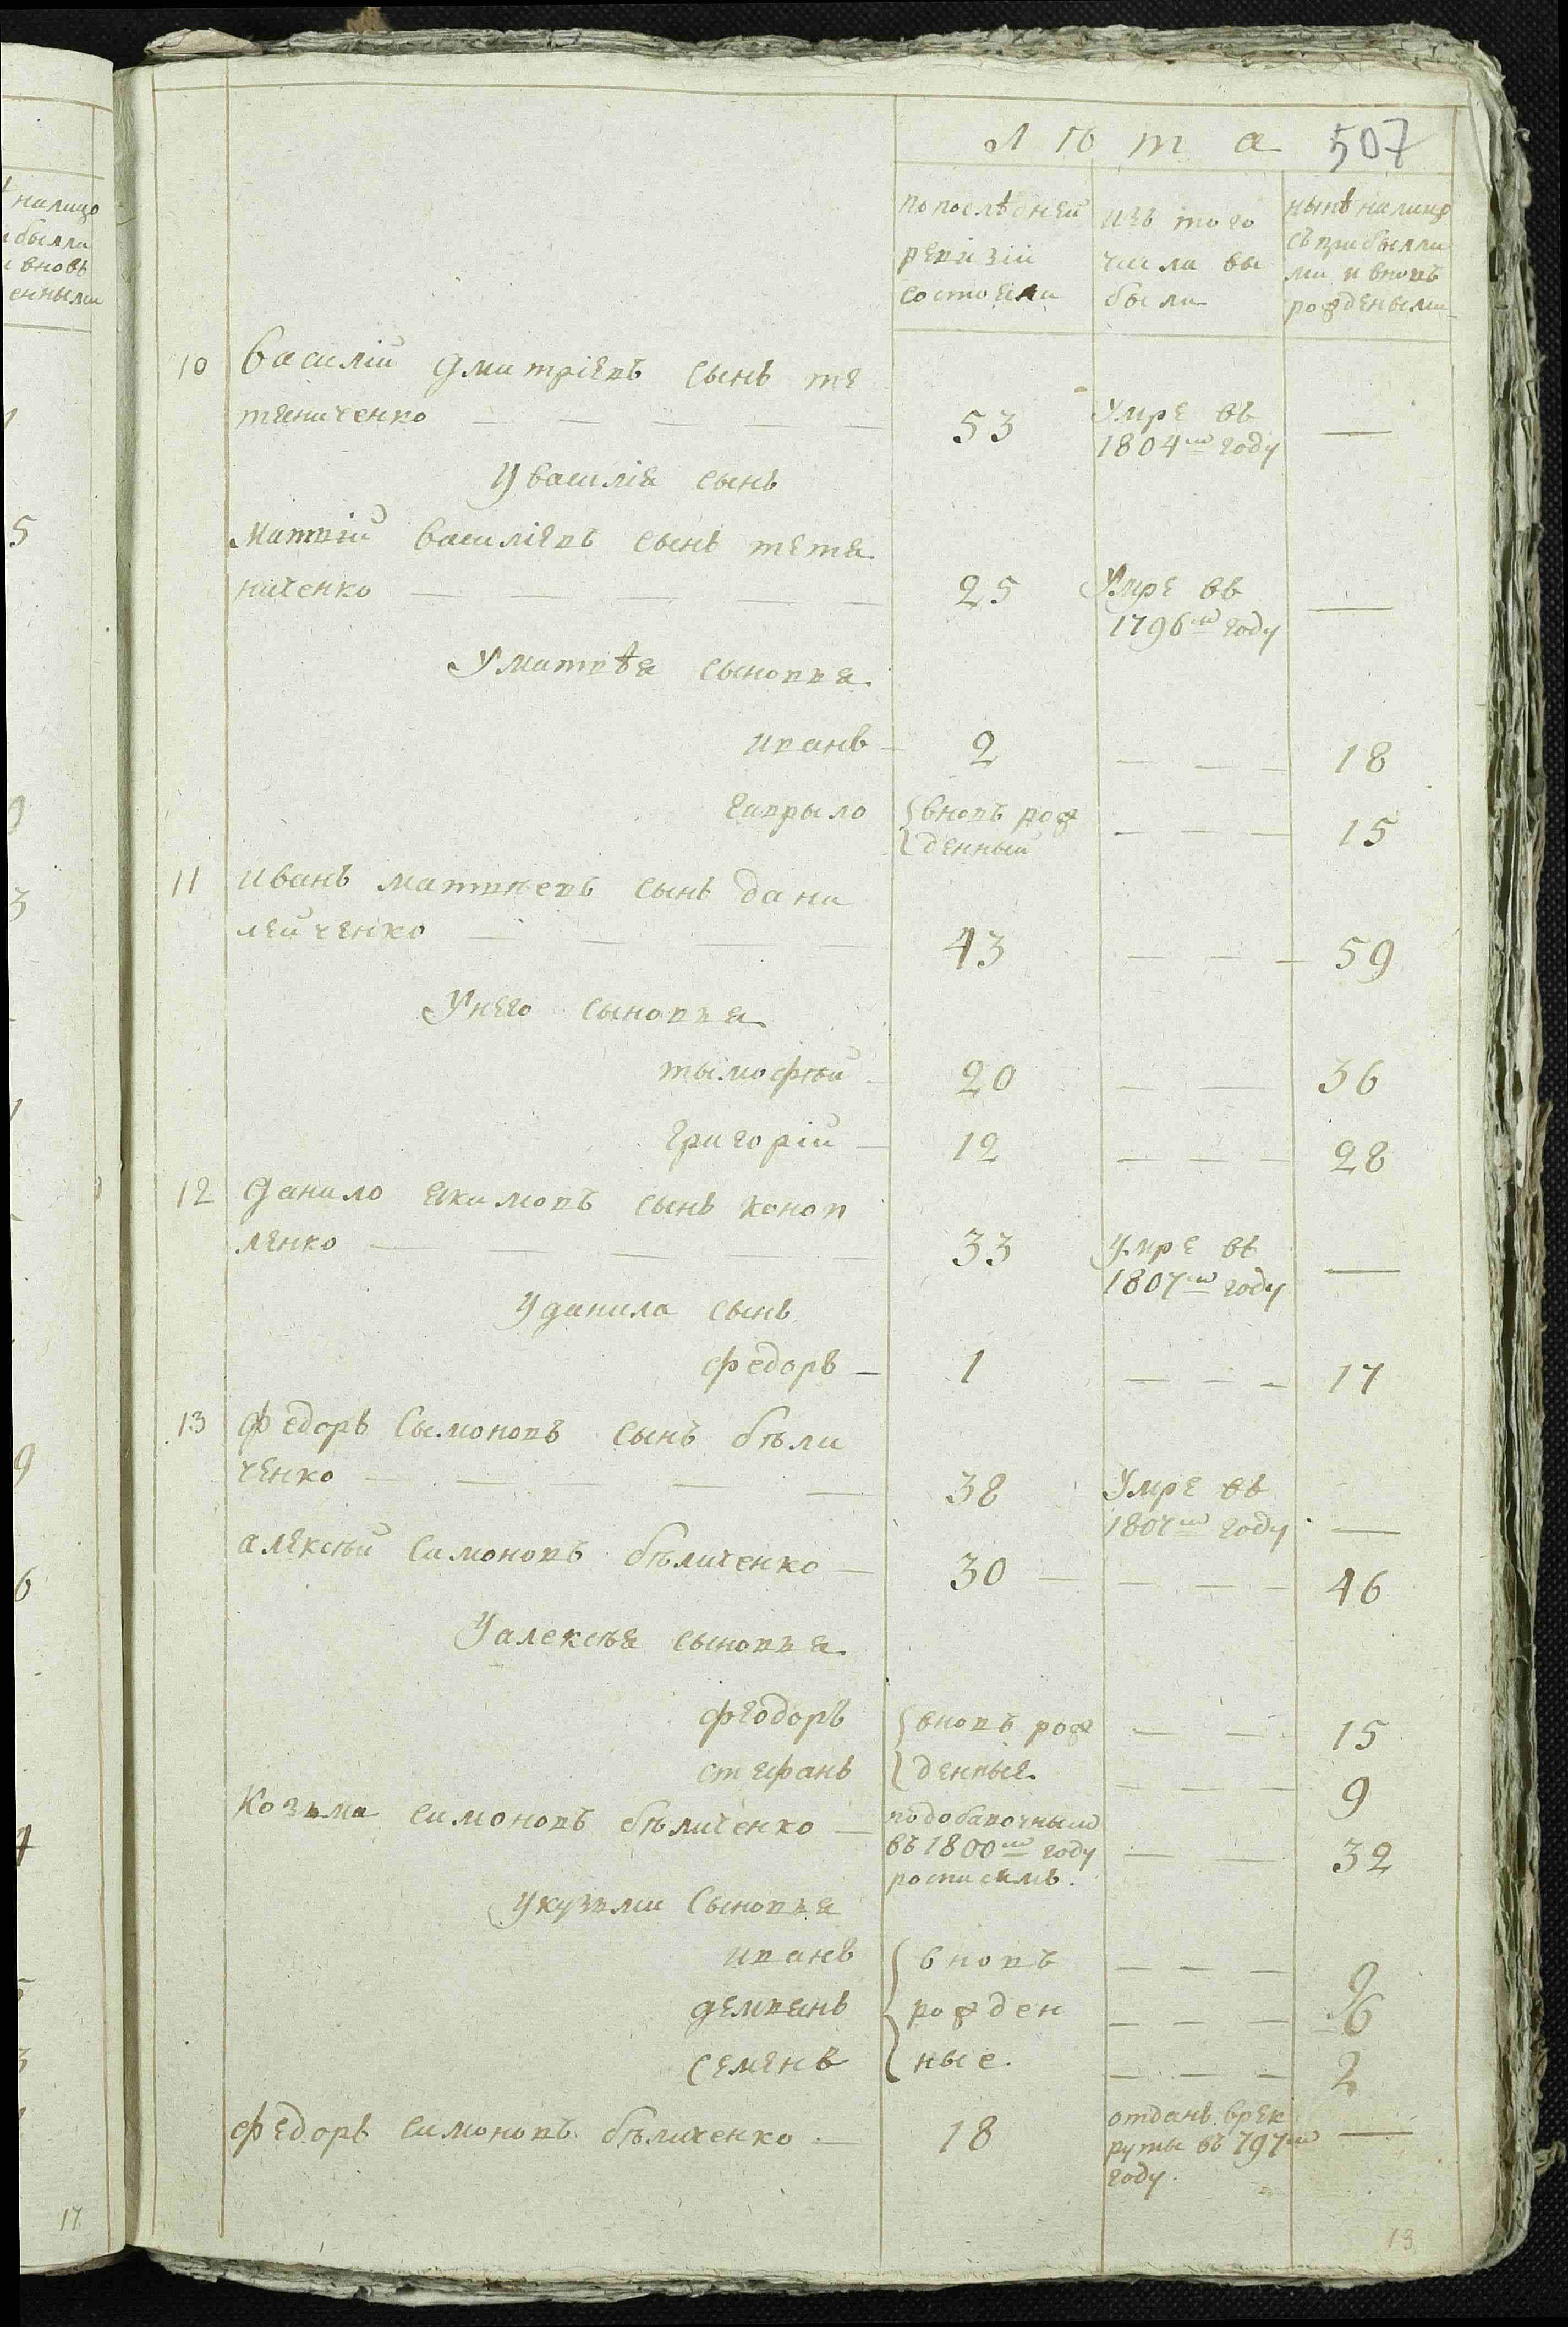 лѣта 507
по послѣдней
ревизіи
состояли
изъ того
числа вы
были
нынѣ налицо
съ прибылы
ми и вновь
рождеными
10 Василій Дмитріевъ сынъ те
тяниченко — — — — — 53 Умре въ 1804м году —
У василія сынъ
Матвій Василіевъ сынъ тетя
ниченко — — — — — 25 Умре въ 1796м году —
У матвѣя сыновья
иванъ — 2 — — — 18
гаврыло вновь рож
денный — — — 15
11 иванъ матвѣевъ сынъ дани
лейченко — — — — 43 — — — 59
У него сыновья
тымофѣй — 20 — — 36
григорій — 12 — — — 28
12 Данило якимовъ сынъ коноп
ленко — — — — 33 Умре въ 1807м году —
У данила сынъ
федоръ — 1 — — — 17
13 Федоръ Сымоновъ сынъ бѣли
ченко — — — — — 38 Умре въ 1807м году —
алексѣй симоновъ бѣличенко — 30 — — — — 46
У алексѣя сыновья
феодоръ вновь рож — — 15
стефанъ денные — — — 9
Козьма симоновъ бѣличенко — по добавочным
въ 1800м году — — 32
росписямъ.
У кузьми Сыновья
иванъ вновь — — — 9
демьянъ рожден — — — 6
семенъ ные. — — — 2
федоръ симоновъ бѣличенко — 18 отданъ врек
руты въ 797м —
году.
13
налицо
былы
вновь
енными
5
3
9
6
17